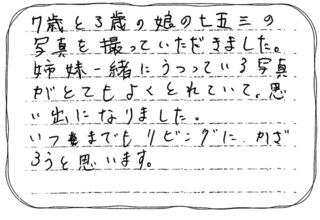 7歳と3歳の娘の七五三の
写真を撮っていただきました。
姉妹一緒にうつっている写真
がとてもよくとれていて、思
い出になりました。
いつまでもリビングに かざ
ろうと思います。